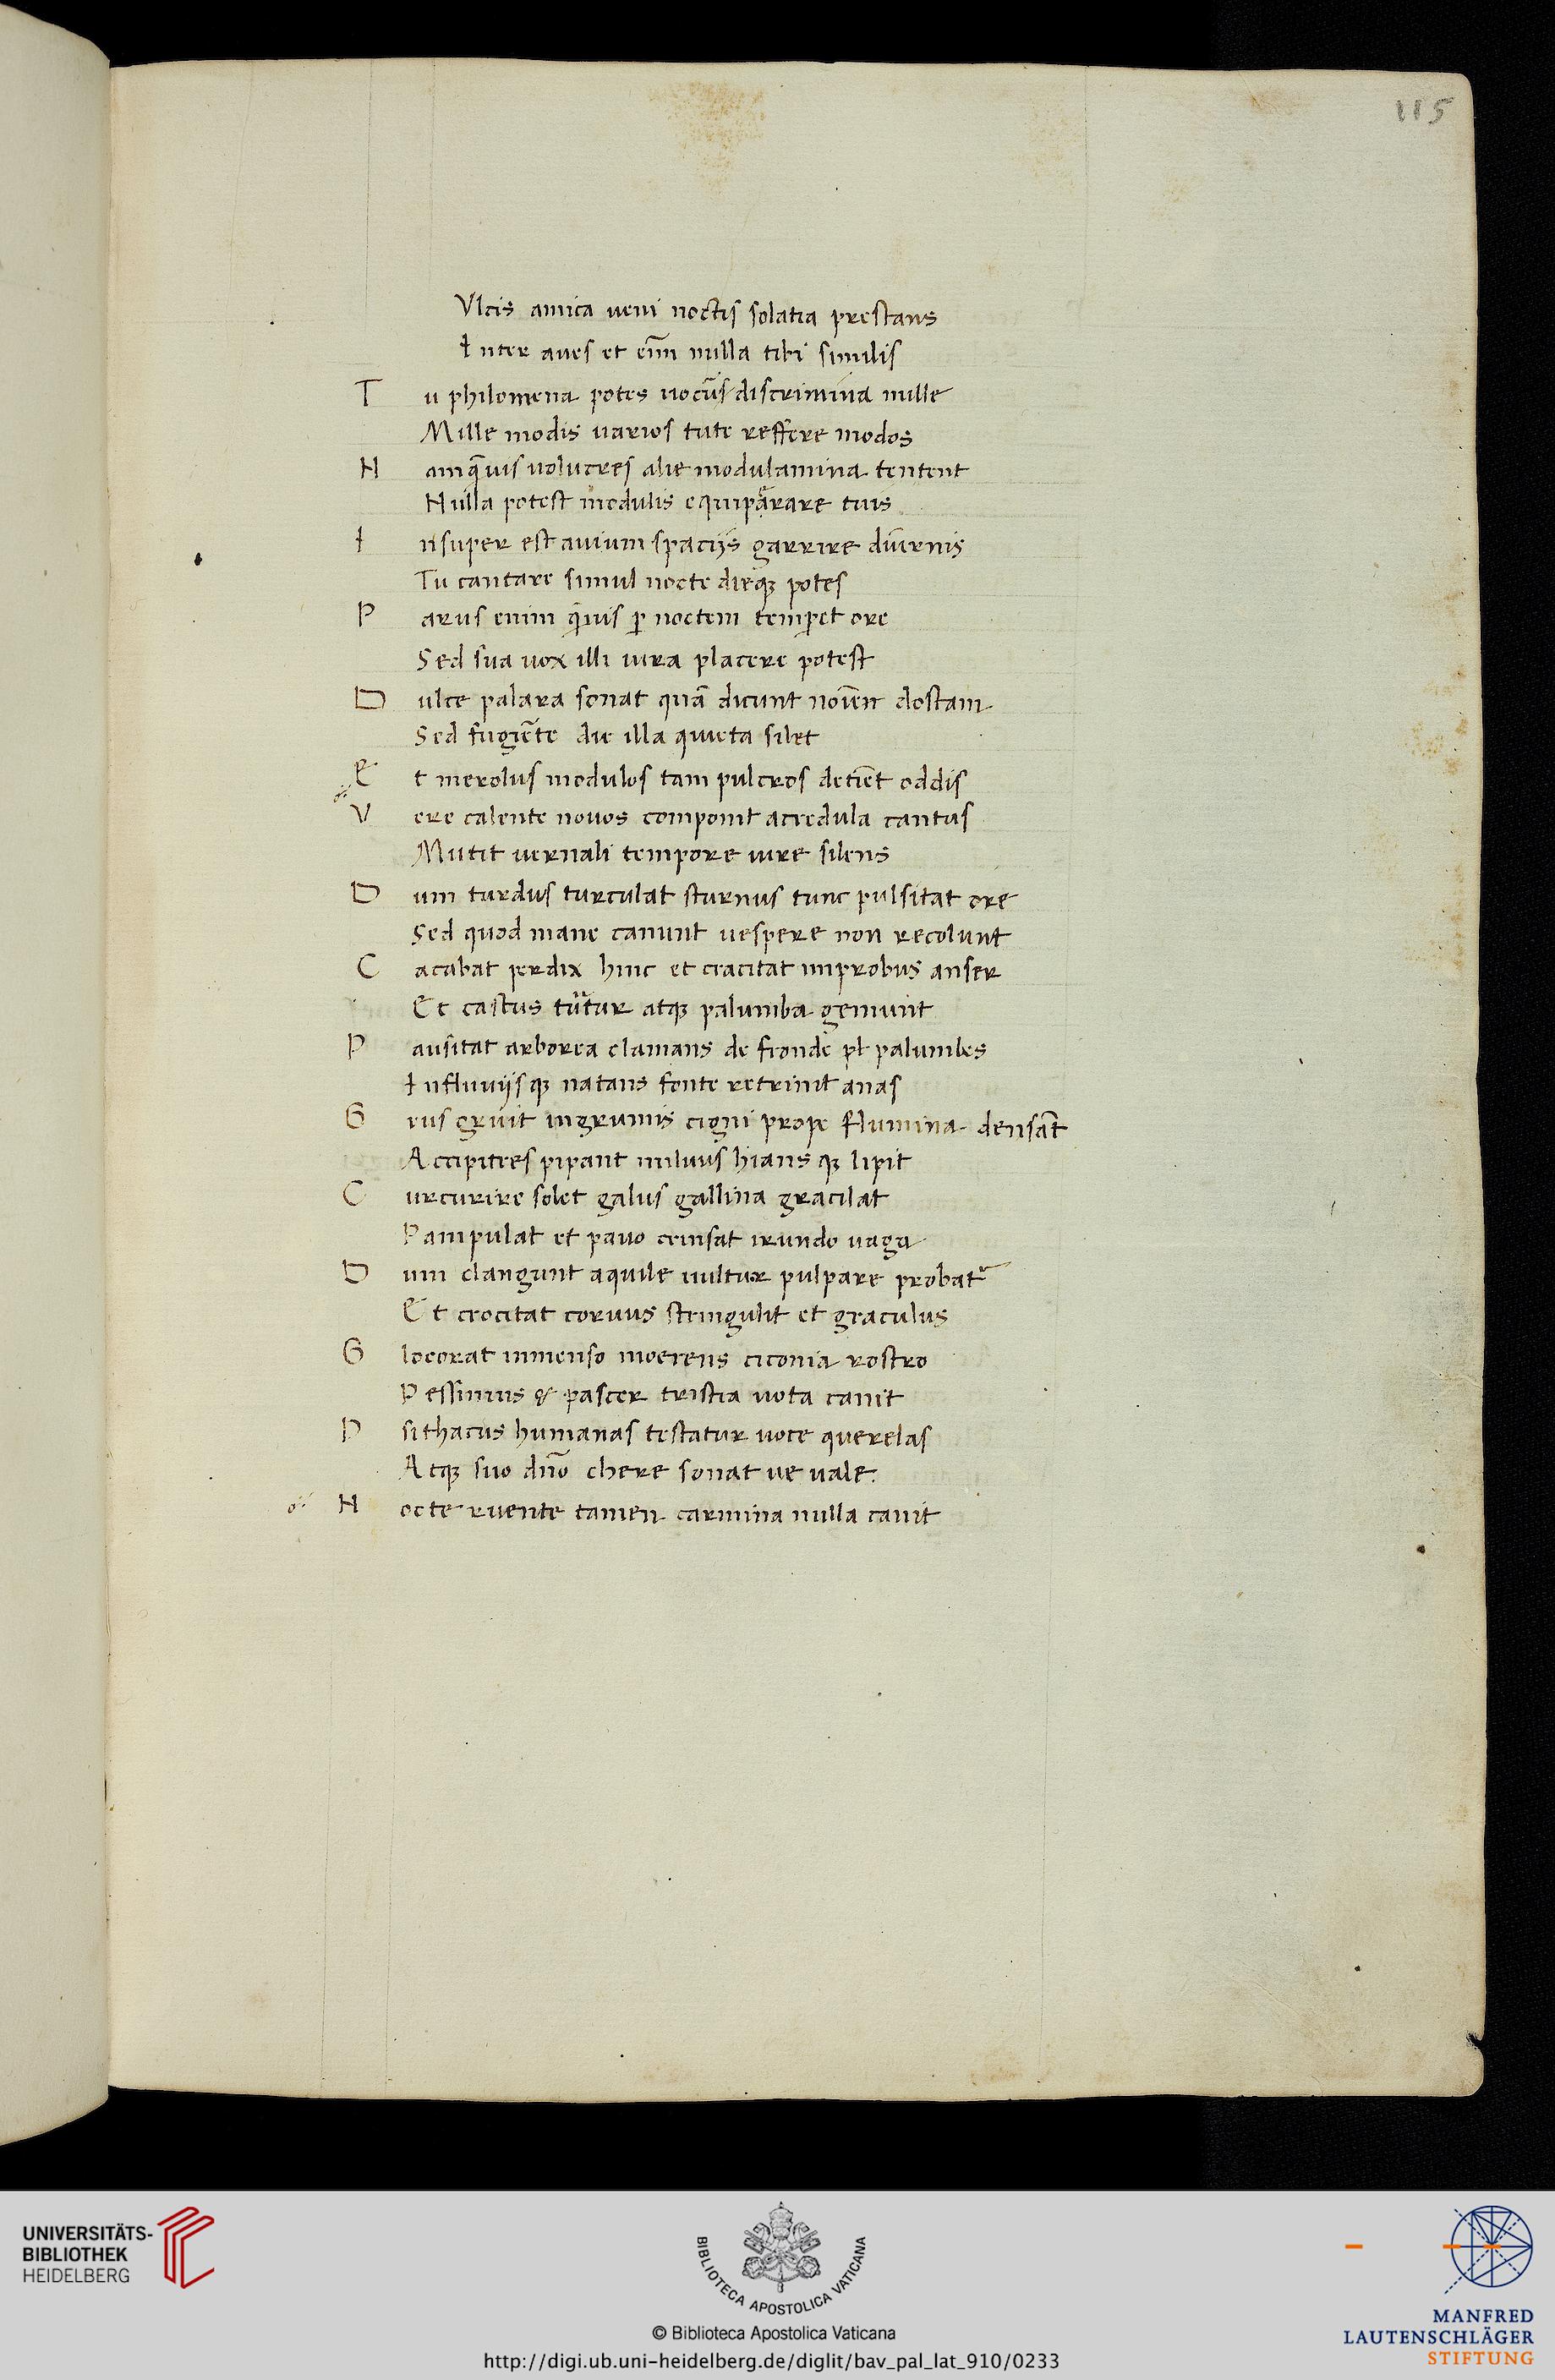 115
Vlcis amica ueni noctis solatia prestans
Inter aues et eīm nulla tibi similis
Tu philomena potes uocū discrimina mille
Mille modis uarios tute reffere modos
Namq̄uis uolucres alie modulamina tentent
Nulla potest modulis equiparare tuis
Insuper est auium spacijs garrire diurnis
Tu cantare simul nocte dieqꝫ potes
Parus enim q̄uis ꝑ noctem temꝑet ore
Sed sua uox illi iura placere potest
Dulce palara sonat quā dicunt noīen dostam
Sed fugiēte die illa quieta silet
Et merolus modulos tam pulcros detiēt oddis
Vere calente nouos componit acredula cantus
Mutit uernali tempore iure silens
Dum turdus turculat sturnus tunc pulsitat ore
Sed quod mane canunt uespere non recolunt
Cacabat perdix hinc et cracitat improbus anser
Et castus turtur atqꝫ palumba gemunt
Pausitat arborea clamans de fronde pl palumbes
Influuijsqꝫ natans fonte retrinit anas
Grus gruit ingrumis cigni prope flumina densāt
Accipitres pipant miluus hiansqꝫ lipit
Curcurire solet galus gallina gracilat
Pampulat et pauo crinsat irundo uaga
Dum clangunt aquile uultur pulpare probatʳ
Et crocitat coruus stringulit et graculus
Glocorat immenso moerens ciconia rostro
Pessimus & passer tristia uota canit
Psithacus humanas testatur uoce querelas
Atqꝫ suo dn̄o chere sonat ue uale.
Nocte ruente tamen carmina nulla canit
UNIVERSITÄTS-
BIBLIOTHEK
HEIDELBERG
BIBLIOTECA APOSTOLICA VATICANA
© Biblioteca Apostolica Vaticana
http://digi.ub.uni-heidelberg.de/diglit/bav_pal_lat_910/0233
MANFRED
LAUTENSCHLÄGER
STIFTUNG